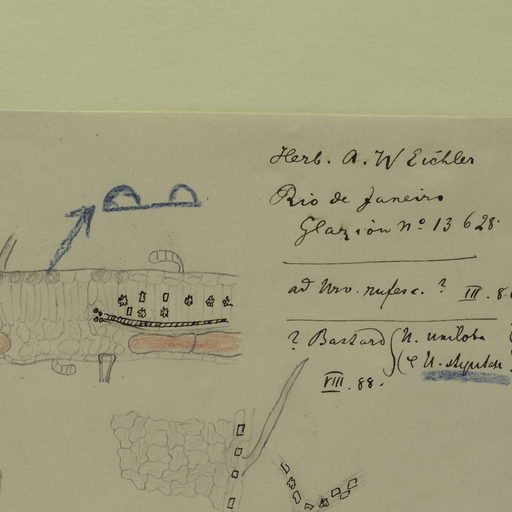 Herb. A. W Eichler
Rio de Janeiro
Glaziou Nº 13 628.
ad Urv. rufesc. ? III. 8
? Bastard (U. uniloba
VIII. 88.